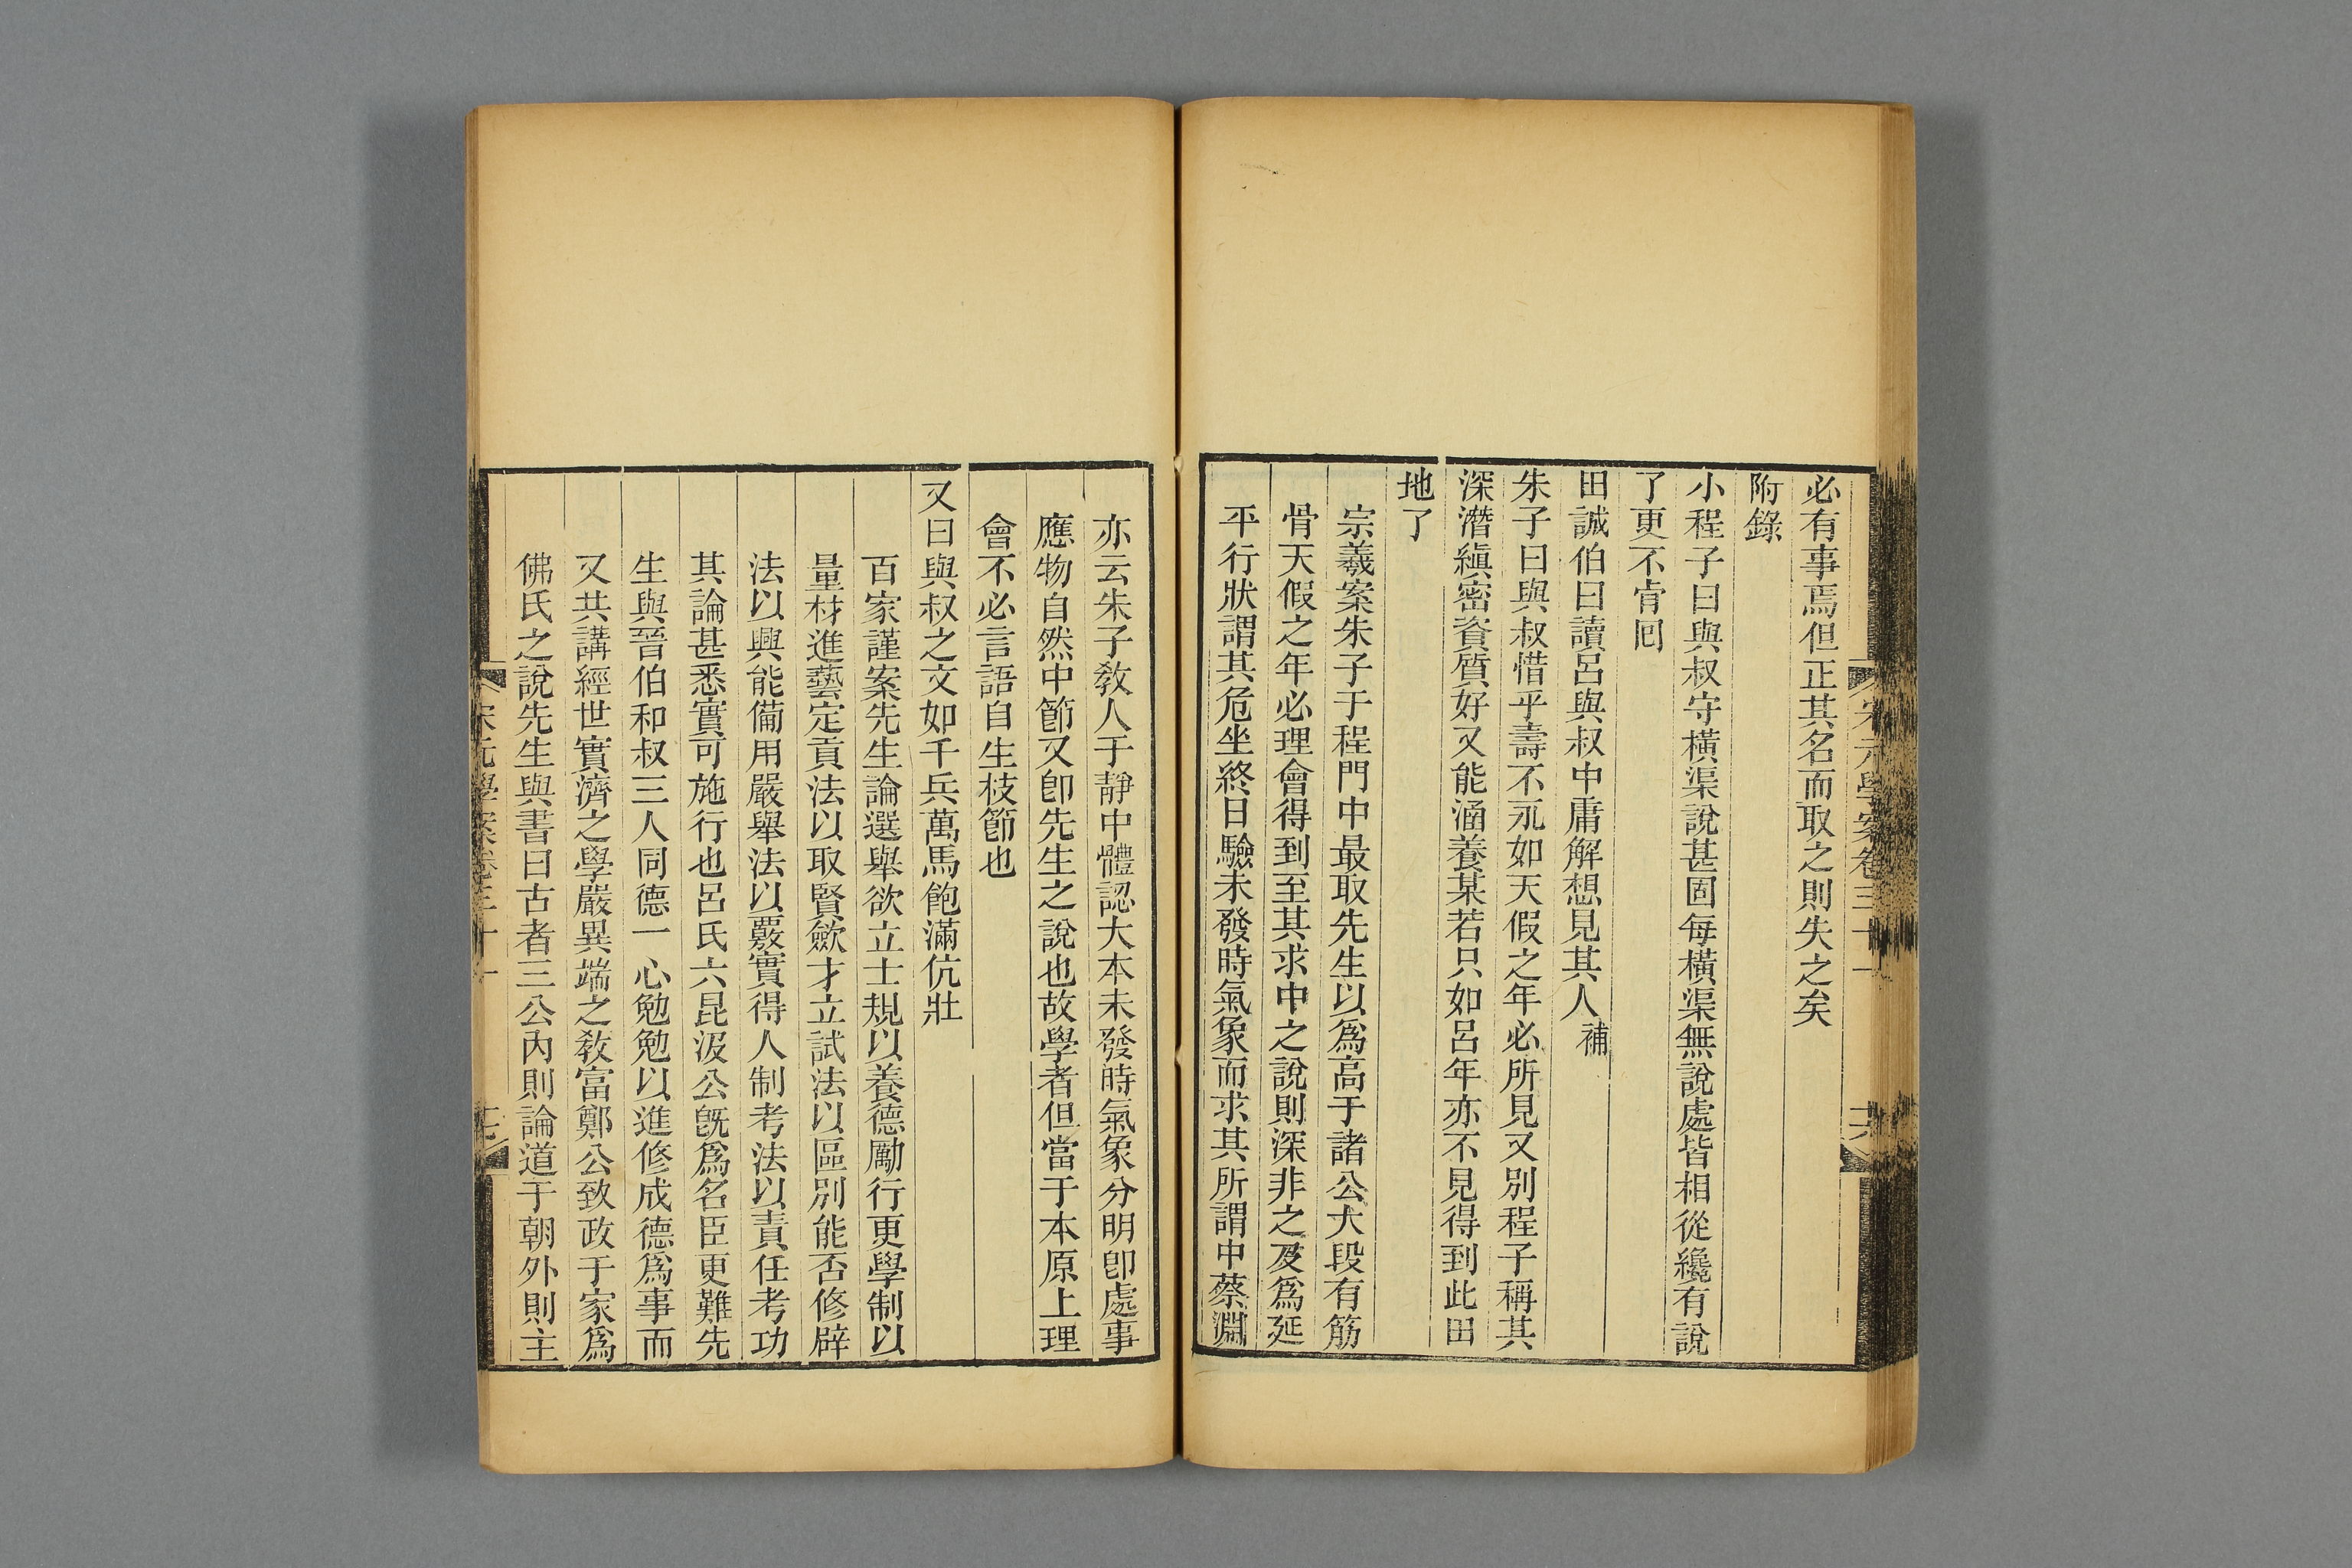 必有事焉但正其名而取之則失之矣
附錄
小程子曰與叔守橫渠說甚固每橫渠無說處皆相從纔有說
了更不肯囘
田誠伯曰讀呂與叔中庸解想見其人補
朱子曰與叔惜乎壽不永如天假之年必所見又別程子稱其
深潛縝密資質好又能涵養某若只如呂年亦不見得到此田
地了
宗羲案朱子于程門中最取先生以爲高于諸公大段有筋
骨天假之年必理會得到至其求中之說則深非之及爲延
平行狀謂其危坐終日驗未發時氣象而求其所謂中蔡淵
亦云朱子敎人于靜中體認大本未發時氣象分明卽處事
應物自然中節又卽先生之說也故學者但當于本原上理
會不必言語自生枝節也
又曰與叔之文如千兵萬馬飽滿伉壯
百家謹案先生論選舉欲立士規以養德勵行更學制以
量材進藝定貢法以取賢歛才立試法以區別能否修辟
法以興能備用嚴舉法以覈實得人制考法以責任考功
其論甚悉實可施行也呂氏六昆汲公旣爲名臣更難先
生與晉伯和叔三人同德一心勉勉以進修成德爲事而
又共講經世實濟之學嚴異端之敎富鄭公致政于家爲
佛氏之說先生與書曰古者三公內則論道于朝外則主
宋元學案卷三十一
十六
宋元學案卷三十一
十七